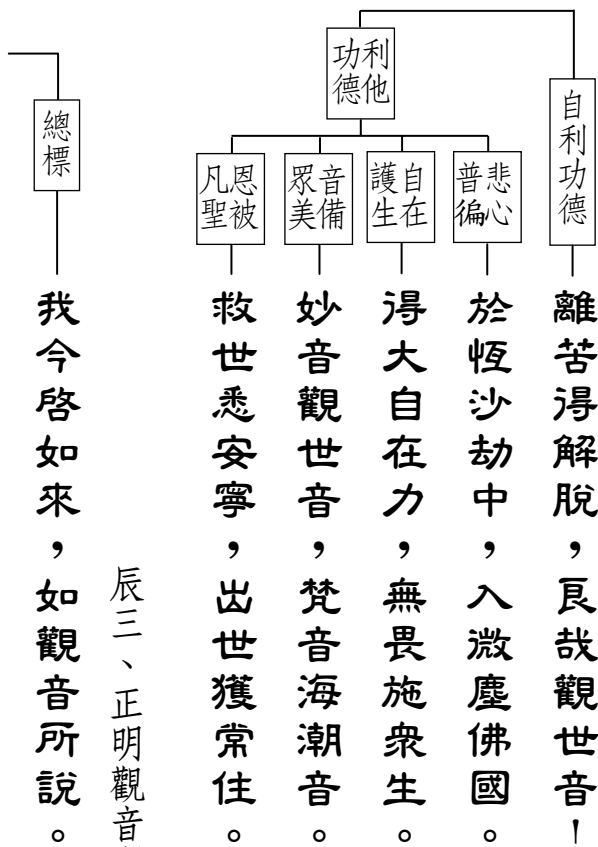 自利功德
離苦得解脫，良哉觀世音！
利他功德
悲心普徧
於恆沙劫中，入微塵佛國。
自在護生
得大自在力，無畏施眾生。
音備眾美
妙音觀世音，梵音海潮音。
恩被凡聖
救世悉安寧，出世獲常住。
辰三、正明觀音
總標
我今啓如來，如觀音所說。